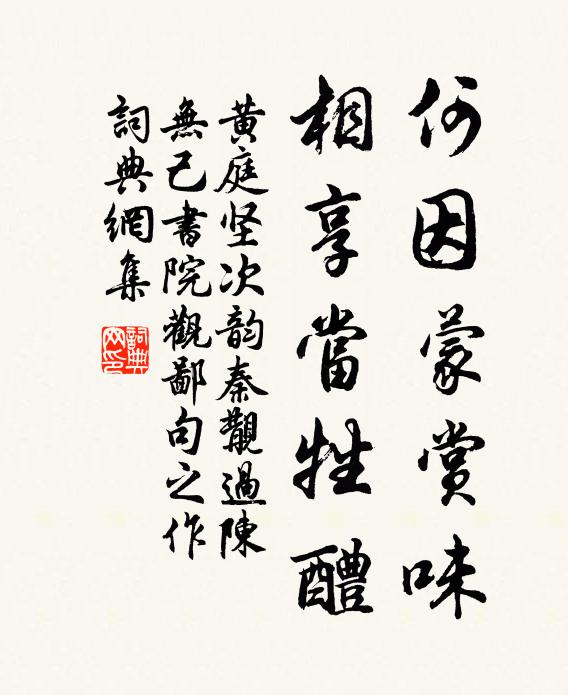 何因蒙賞味
相享當牲醴
黃庭坚次韵秦觏過陳
無己書院觀鄙句之作
詞典網集
詞典网印